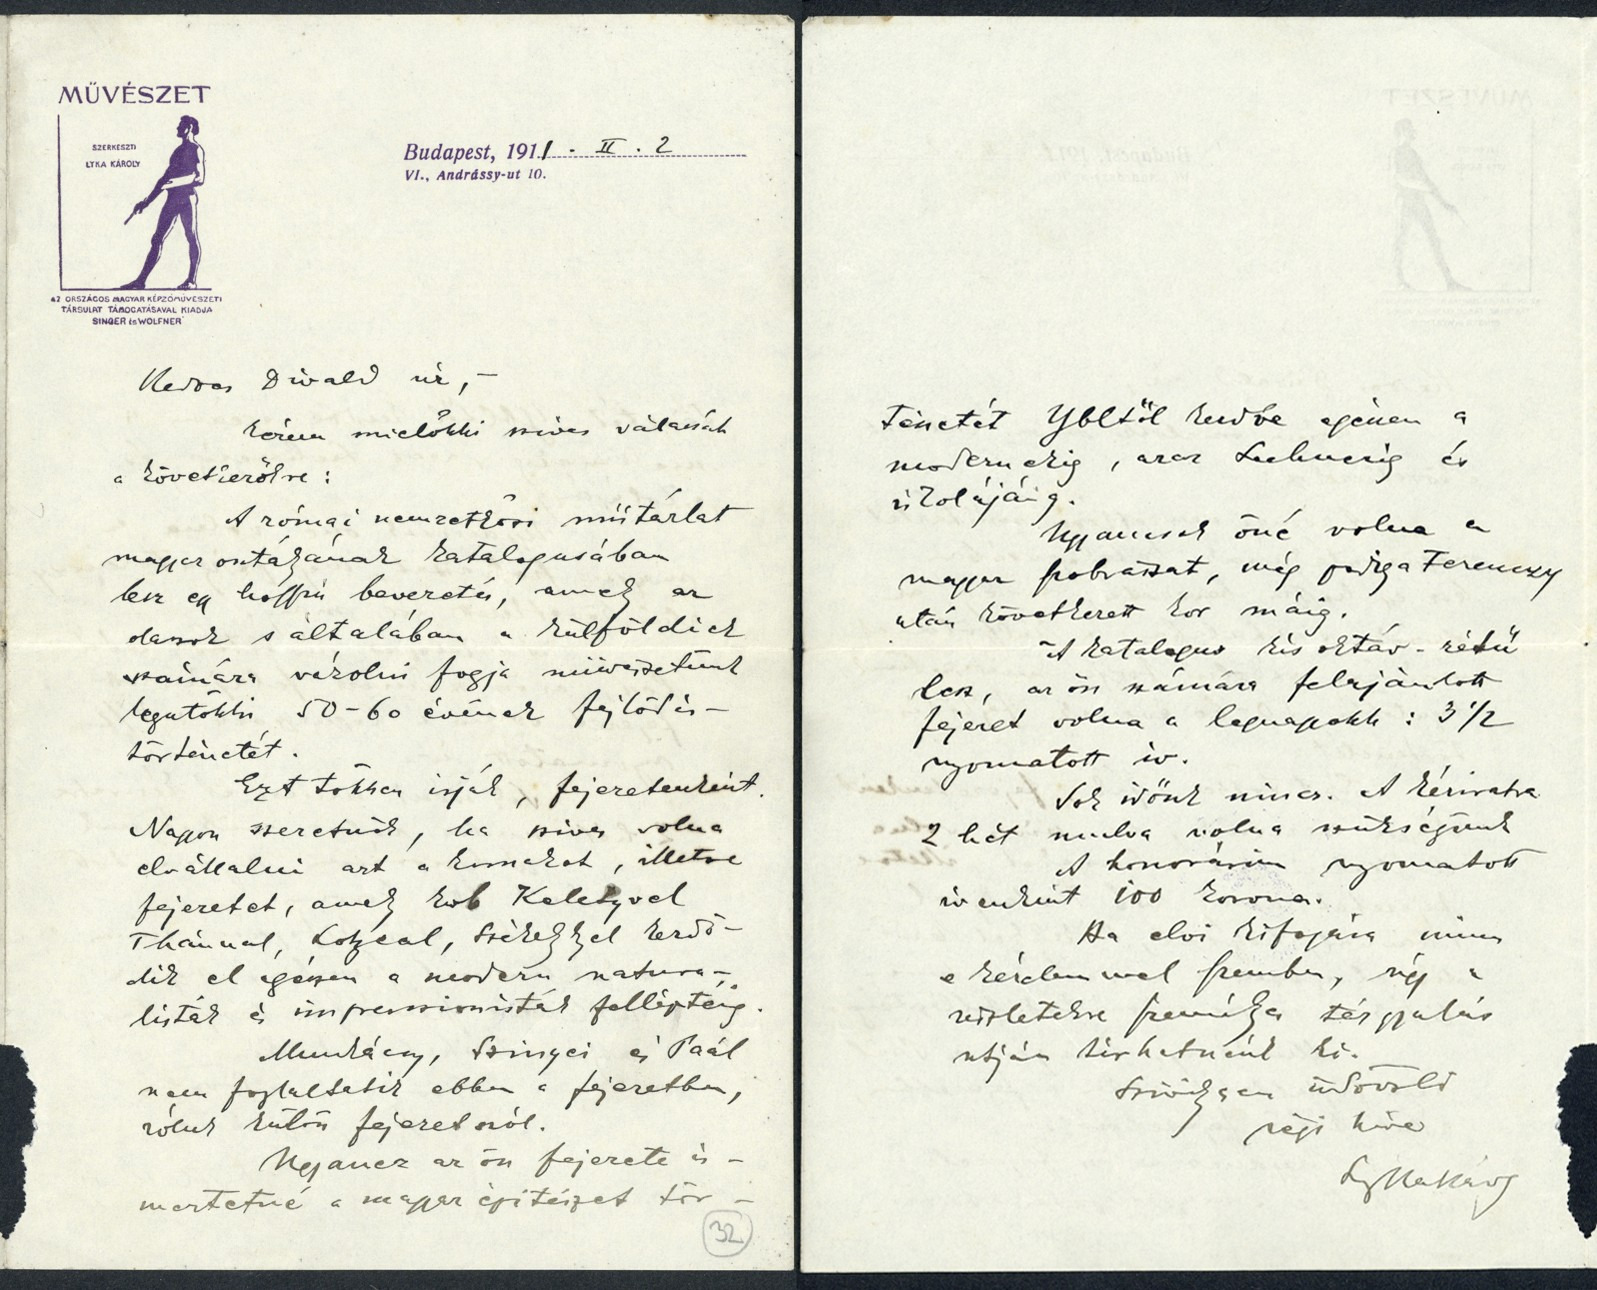 MŰVÉSZET
SZERKESZTI
LYKA KÁROLY
AZ ORSZÁGOS MAGYAR KÉPZŐMŰVÉSZETI
TÁRSULAT TÁMOGATÁSÁVAL KIADJA
SINGER és WOLFNER
Budapest, 1911. II. 2
VI., Andrássy-ut 10.
Kedves Divald úr, –
Kérem mielőbbi szives válaszát
a következőkre:
A római nemzetközi műtárlat
magyar osztályának katalogusában
lesz egy hosszú bevezetés, amely az
olaszok s általában a külföldiek
számára vázolni fogja művészetünk
legutóbbi 50-60 évének fejlődés-
történetét.
Ezt többen irják, fejezetenkint.
Nagyon szeretnők, ha szives volna
elvállalni azt a korszakot, illetve
fejezetet, amely kb Keletyvel
Thánnal, Lotzcal, Székelyvel kezdő-
dik el egészen a modern natura-
listák és impresszionisták felléptéig.
Munkácsy, Szinyei és Paál
nem foglaltatik ebben a fejezetben,
róluk külön fejezet szól.
Ugyanez az ön fejezete is-
mertetné a magyar épitészet tör-
32
ténetét Ybltől kezdve egészen a
modernekig, azaz Lechnerig és
iskolájáig.
Ugyancsak öné volna a
magyar szobrászat, még pedig a Ferenczy
után következett kor máig.
A katalogus kis oktáv-rétű
lesz, az ön számára felajánlott
fejezet volna a legnagyobb: 3 1/2
nyomatott ív.
Sok időnk nincs. A kéziratra
2 hét mulva volna szükségünk
A honorárium nyomatott
ivenkint 100 korona.
Ha elvi kifogása nincs
e kérelemmel szemben, úgy a
részletekre személyes tárgyalás
utján térhetnénk ki.
Szivélyesen üdvözli
régi hive
Lyka Károly